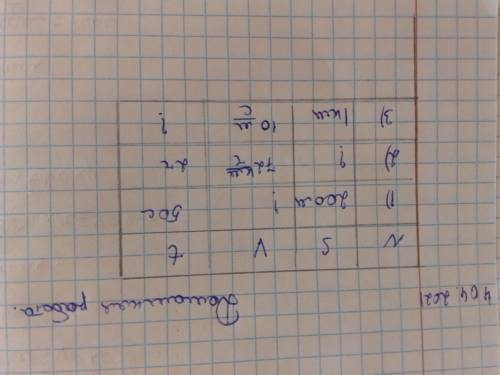 4 04. 2021
Домашняя работа.
N S V t
1) 200 м ? 50 с
2) ? 72 км/ч 2 ч
3) 1 км 10 м/с ?